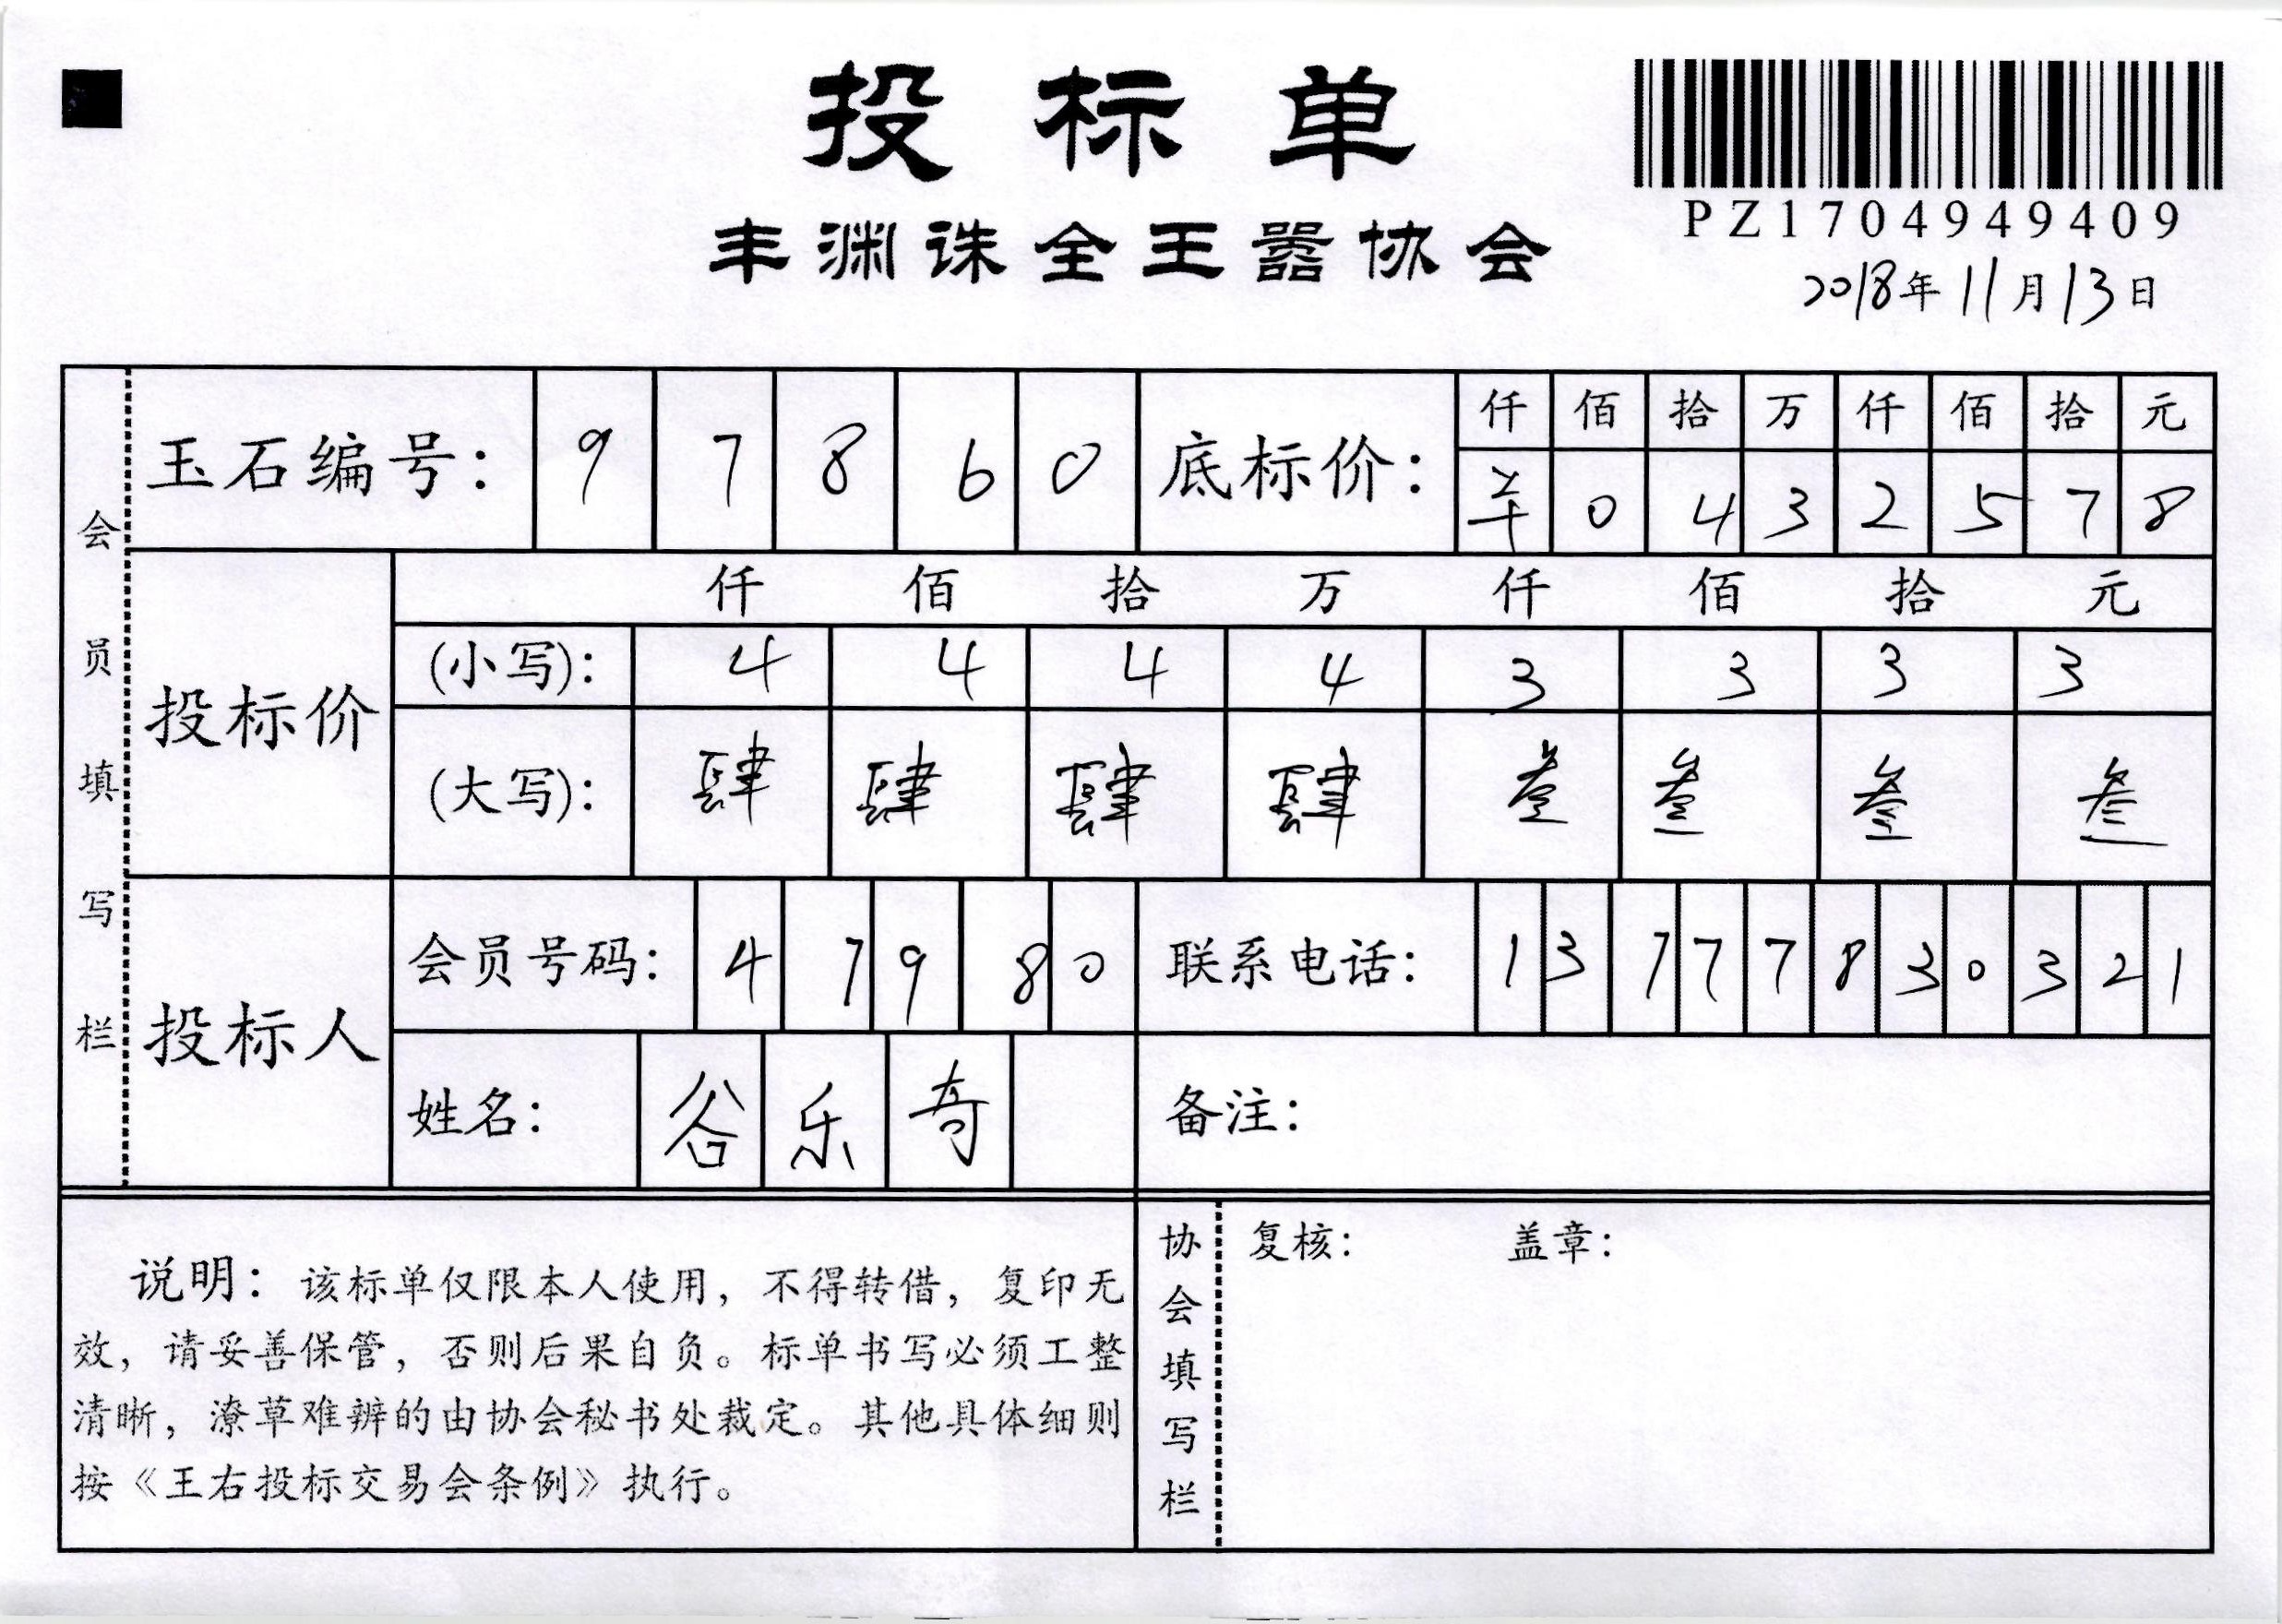 投标单
PZ1704949409
丰渊诛全王嚣协会
2018年11月13日
会员填写栏
玉石编号: 9 7 8 6 0 底标价: 仟 佰 拾 万 仟 佰 拾 元
0 4 3 2 5 7 8
投标价 仟 佰 拾 万 仟 佰 拾 元
(小写): 4 4 4 4 3 3 3 3
(大写): 肆 肆 肆 肆 叁 叁 叁 叁
投标人 会员号码: 4 7 9 8 0 联系电话: 1 3 7 7 7 8 3 0 3 2 1
姓名: 谷 乐 奇 备注:
说明: 该标单仅限本人使用, 不得转借, 复印无
效, 请妥善保管, 否则后果自负。标单书写必须工整
清晰, 潦草难辨的由协会秘书处裁定。其他具体细则
按《王右投标交易会条例》执行。
协会填写栏
复核: 盖章: